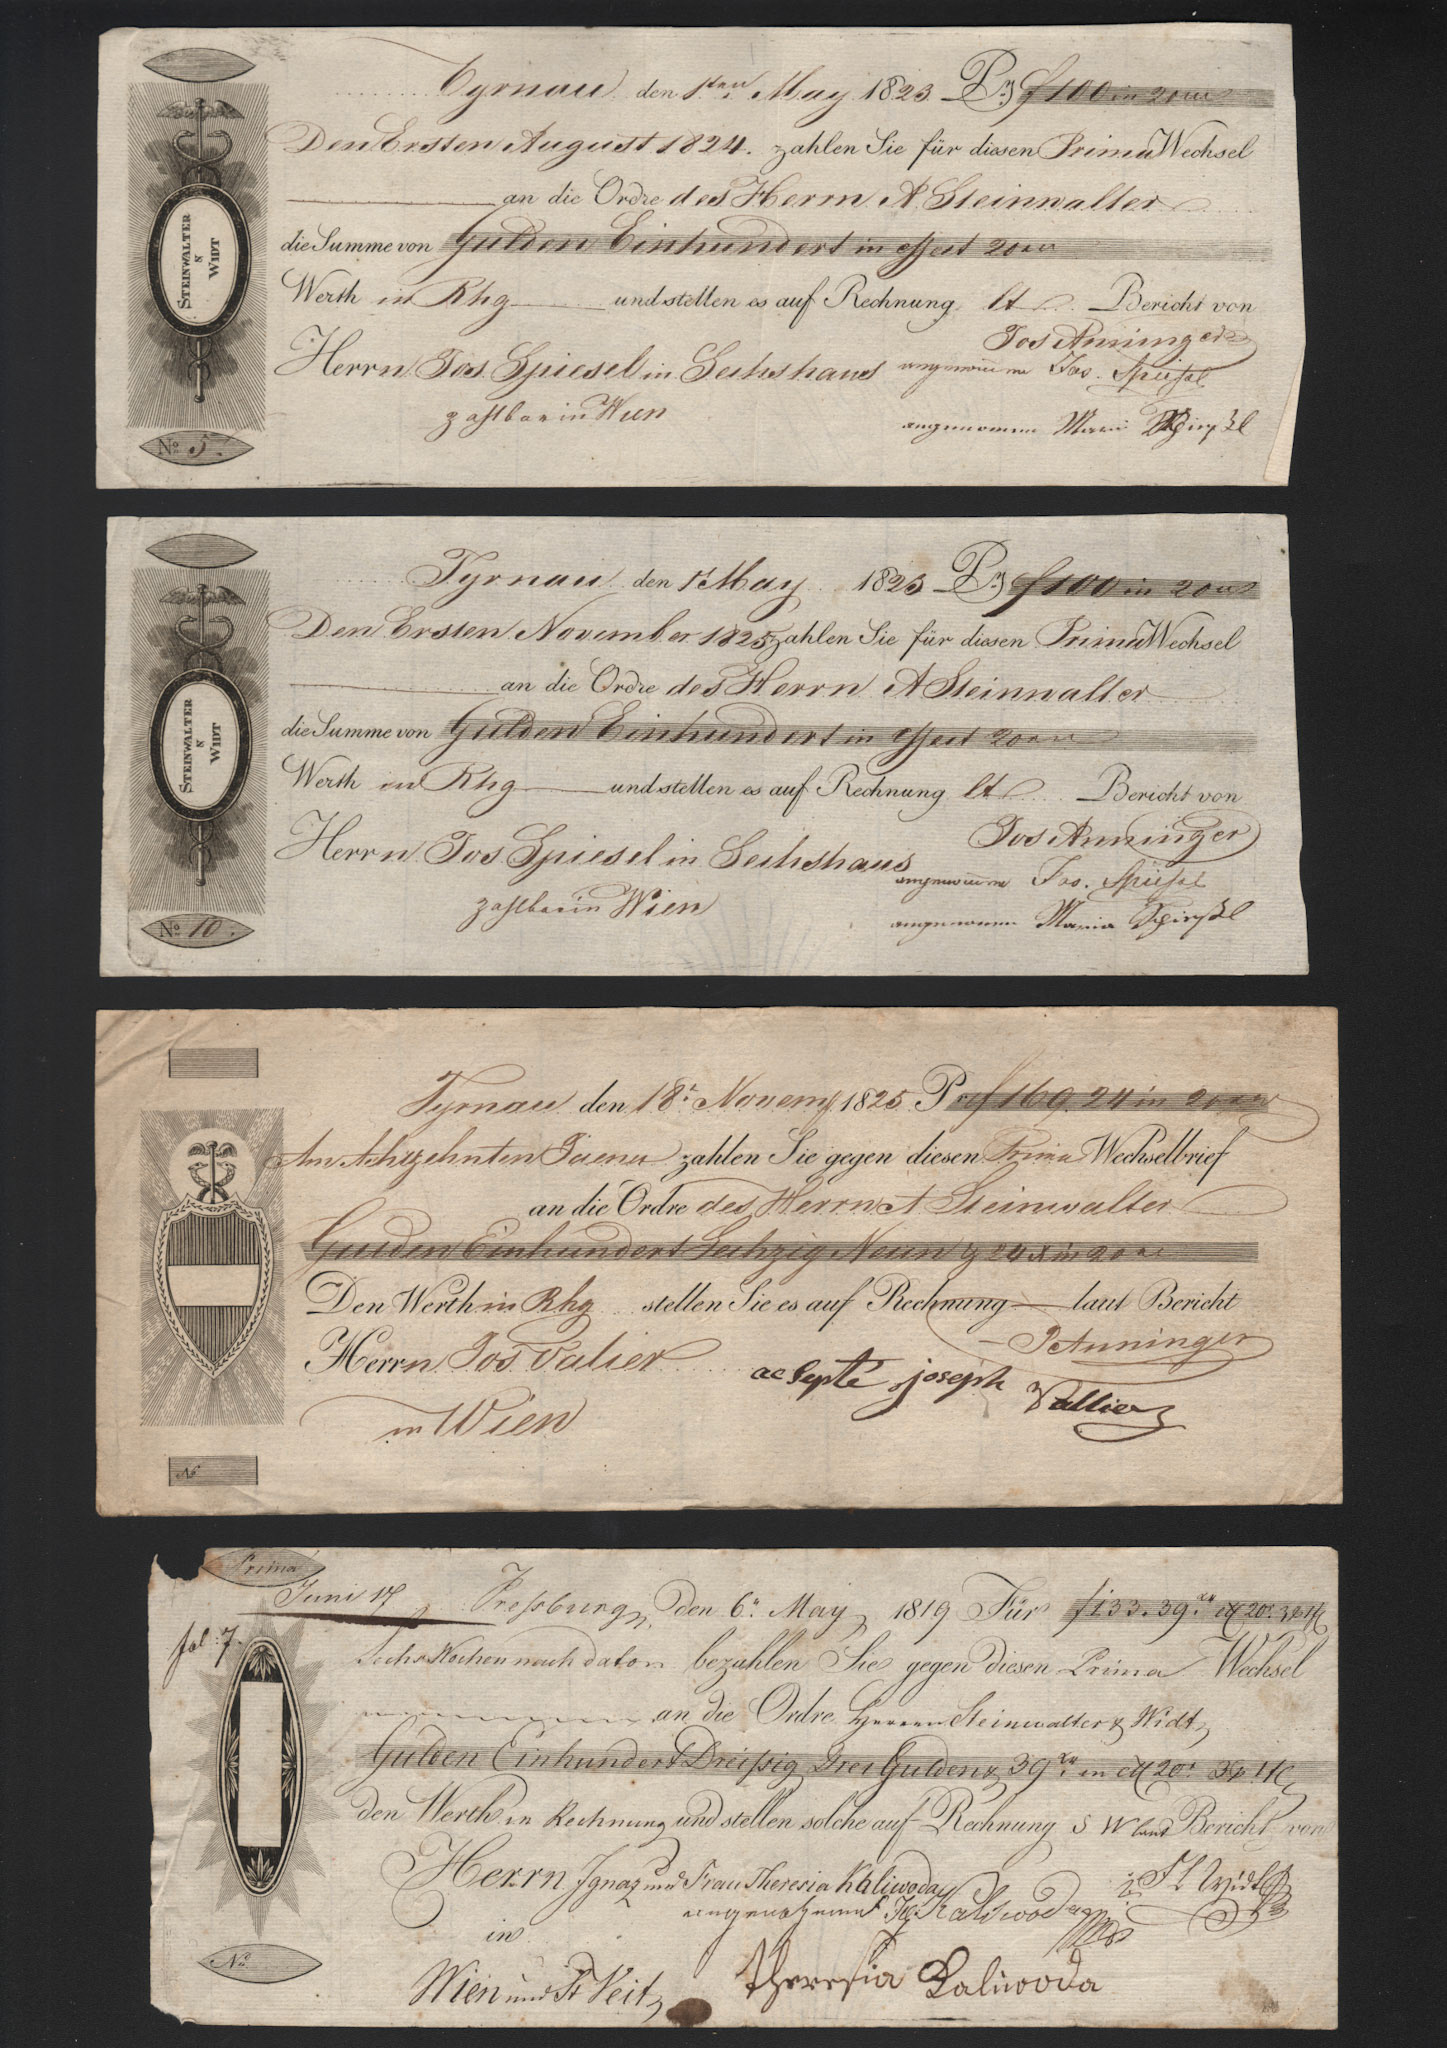 Tyrnau den 1ten May 1823 Pr f 100 in 20rn
Den Ersten August 1824. zahlen Sie für diesen Prima Wechsel
an die Ordre des Herrn A Steinwalter
die Summe von Gulden Einhundert in effect 20rn
Werth in Rhg und stellen es auf Rechnung lt Bericht von
Jos Anninger
Herrn Jos. Spiesel in Sechshaus
angenommen Jos. Speisel
zahlbar in Wien
angenommen Maria
STEINWALTER
&
WIDT
No 5.
Tyrnau den 1t May 1823 Pr f 100 in 20rn
Den Ersten November 1825 zahlen Sie für diesen Prima Wechsel
an die Ordre des Herrn A Steinwalter
die Summe von Gulden Einhundert in effect 20rn
Werth in Rhg und stellen es auf Rechnung lt Bericht von
Jos Anninger
Herrn Jos Spiesel in Sechshaus
angenommen Jos. Speisel
zahlbar in Wien
angenommen Maria
STEINWALTER
&
WIDT
No 10.
Tyrnau den 18t Novemb 1825 Pr f 169 24 in 20rn
Am Achtzehnten Jaener zahlen Sie gegen diesen Prima Wechselbrief
an die Ordre des Herrn A Steinwalter
Gulden Einhundert Sechzig Neun & 24 x in 20rn
Den Werth in Rhg stellen Sie es auf Rechnung laut Bericht
J Anninger
Herrn Jos Valier
accepté joseph Vallier
in Wien
No
Prima
Juni 17
fol: 7.
Pressburg, den 6n May 1819 Für f 133. 39 xr
Sechs Wochen nach dato bezahlen Sie gegen diesen Prima Wechsel
an die Ordre Herren Steinwalter & Widt
Gulden Einhundert Dreißig Drei Gulden & 39 xr in
den Werth in Rechnung und stellen solche auf Rechnung S W laut Bericht von
Herrn Ignaz und Frau Theresia Kaliwoda
Widt
angenohmen Ig Kaliwoda
in
Wien und St Veit
theresia Kaliwoda
No